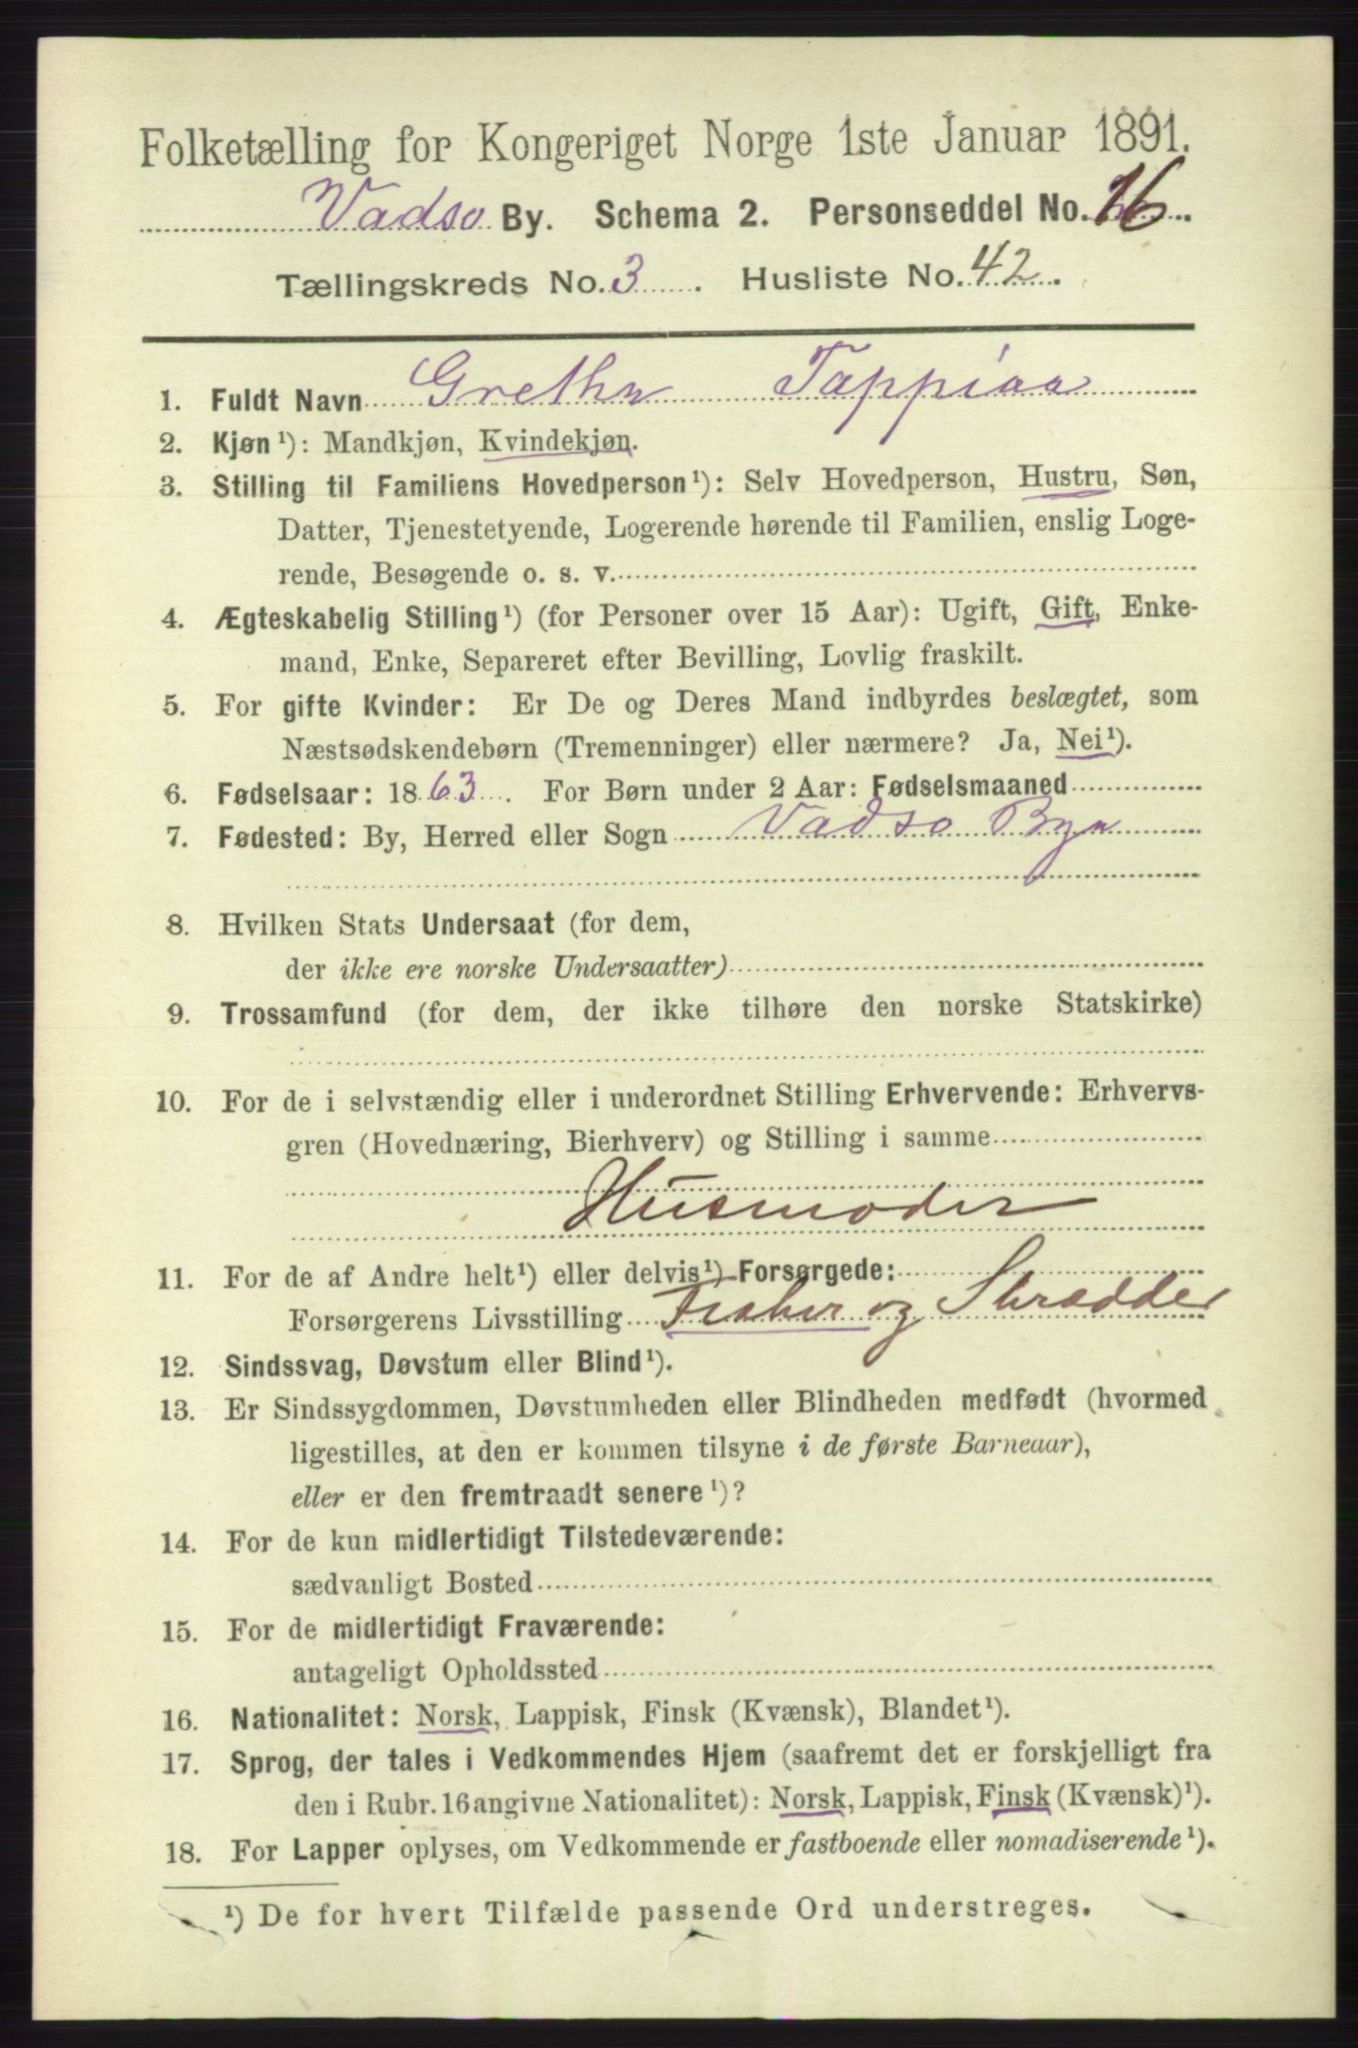 Folketælling for Kongeriget Norge 1ste Januar 1891.
Vadso By. Schema 2. Personseddel No. 16.
Tællingskreds No. 3. Husliste No. 42.
1. Fuldt Navn Grethe Tappiaa
2. Kjøn¹): Mandkjøn, Kvindekjøn.
3. Stilling til Familiens Hovedperson¹): Selv Hovedperson, Hustru, Søn,
Datter, Tjenestetyende, Logerende hørende til Familien, enslig Loge-
rende, Besøgende o. s. v.
4. Ægteskabelig Stilling¹) (for Personer over 15 Aar): Ugift, Gift, Enke-
mand, Enke, Separeret efter Bevilling, Lovlig fraskilt.
5. For gifte Kvinder: Er De og Deres Mand indbyrdes beslægtet, som
Næstsødskendebørn (Tremenninger) eller nærmere? Ja, Nei¹).
6. Fødselsaar: 1863. For Børn under 2 Aar: Fødselsmaaned
7. Fødested: By, Herred eller Sogn Vadso By
8. Hvilken Stats Undersaat (for dem,
der ikke ere norske Undersaatter)
9. Trossamfund (for dem, der ikke tilhøre den norske Statskirke)
10. For de i selvstændig eller i underordnet Stilling Erhvervende: Erhvervs-
gren (Hovednæring, Bierhverv) og Stilling i samme
Husmoder
11. For de af Andre helt¹) eller delvis¹) Forsørgede:
Forsørgerens Livsstilling Fisker og Skrædder
12. Sindssvag, Døvstum eller Blind¹).
13. Er Sindssygdommen, Døvstumheden eller Blindheden medfødt (hvormed
ligestilles, at den er kommen tilsyne i de første Barneaar),
eller er den fremtraadt senere¹)?
14. For de kun midlertidigt Tilstedeværende:
sædvanligt Bosted
15. For de midlertidigt Fraværende:
antageligt Opholdssted
16. Nationalitet: Norsk, Lappisk, Finsk (Kvænsk), Blandet¹).
17. Sprog, der tales i Vedkommendes Hjem (saafremt det er forskjelligt fra
den i Rubr. 16 angivne Nationalitet): Norsk, Lappisk, Finsk (Kvænsk)¹).
18. For Lapper oplyses, om Vedkommende er fastboende eller nomadiserende¹).
¹) De for hvert Tilfælde passende Ord understreges.